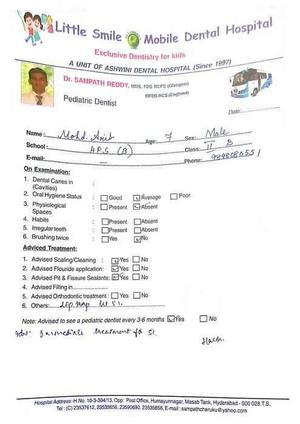 Little Smile Mobile Dental Hospital
Exclusive Dentistry for kids
A UNIT OF ASHWINI DENTAL HOSPITAL (Since 1997)
Dr. SAMPATH REDDY, MDS, FDS RCPS (Glasgow)
MFDS RCS (England)
Pediatric Dentist
Date:
Name: Mohd. Age: 7 Sex: Male
School: H.P.S (B) Class: II B
E-mail: Phone:
On Examination:
1. Dental Caries in :
(Cavities)
2. Oral Hygiene Status : Good Average Poor
3. Physiological : Present Absent
Spaces
4. Habits : Present Absent
5. Irregular teeth : Present Absent
6. Brushing twice : Yes No
Adviced Treatment:
1. Advised Scaling/Cleaning : Yes No
2. Advised Flouride application: Yes No
3. Advised Pit & Fissure Sealants: Yes No
4. Advised Filling in
5. Advised Orthodontic treatment : Yes No
6. Others:
Note: Advised to see a pediatric dentist every 3-6 months Yes No
Immediate treatment 51.
Hospital Address: H.No. 10-3-304/13, Opp: Post Office, Humayunnagar, Masab Tank, Hyderabad - 500 028 T.S.
Tel : (C) 23537612, 23535656, 23590690, 23535858, E-mail : sampathcheruku@yahoo.com